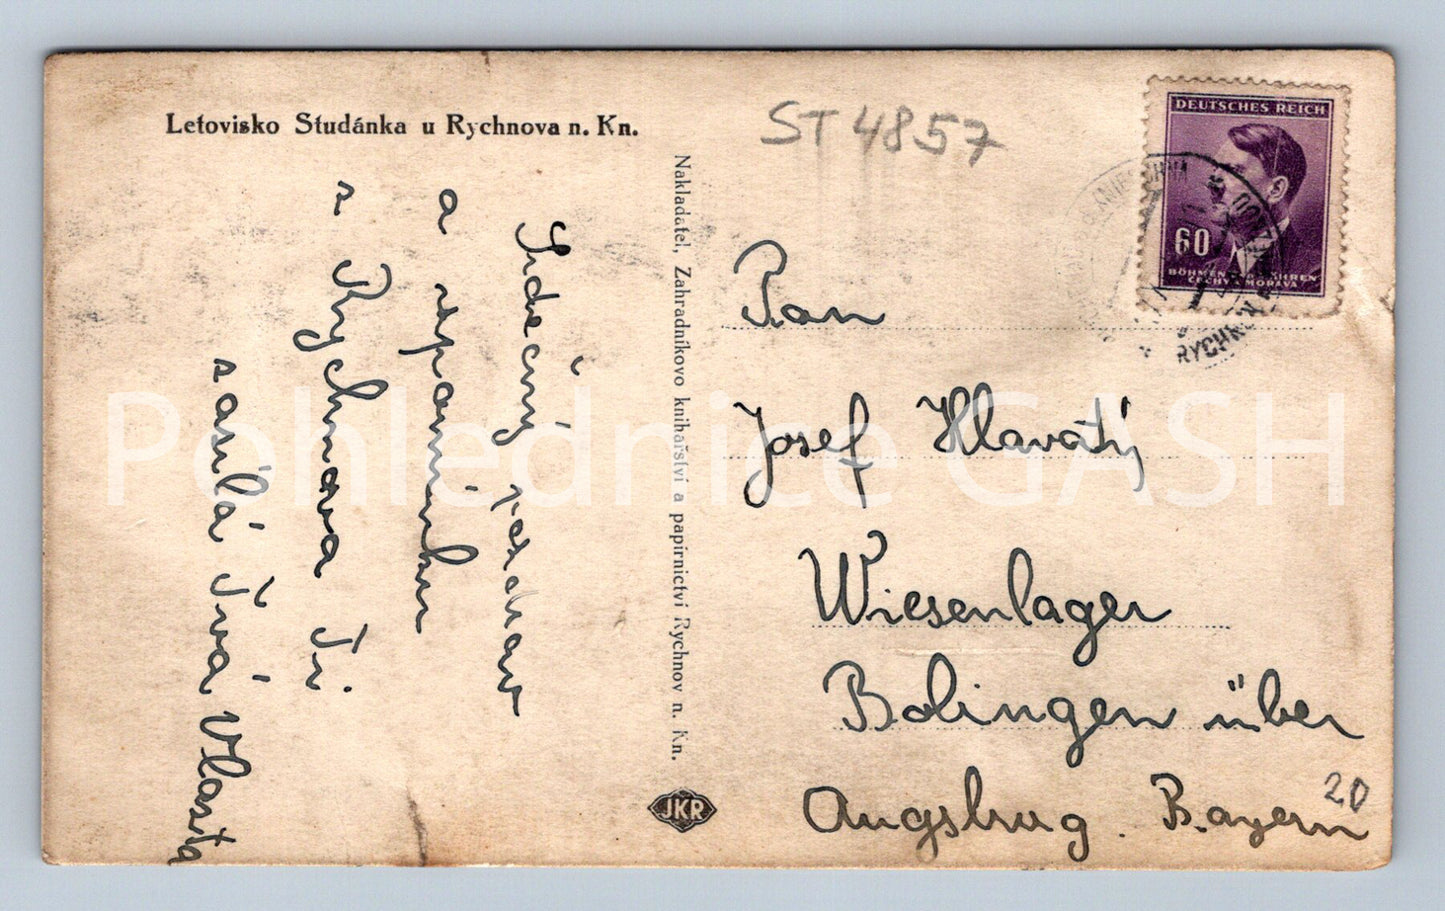 Letovisko Studánka u Rychnova n. Kn.
ST 4857
DEUTSCHES REICH
60
BÖHMEN MÄHREN
ČECHY A MORAVA
RYCHNOV
Srdečný pozdrav
a vzpomínku
z Rychnova Ti
zasílá Tvá Vlasta
Nakladatel, Zahradníkovo knihařství a papírnictví Rychnov n. Kn.
JKR
Pan
Josef Hlavatý
Wiesenlager
Bolingen über
Augsbrug. Bayern
20
Pohlednice GASH